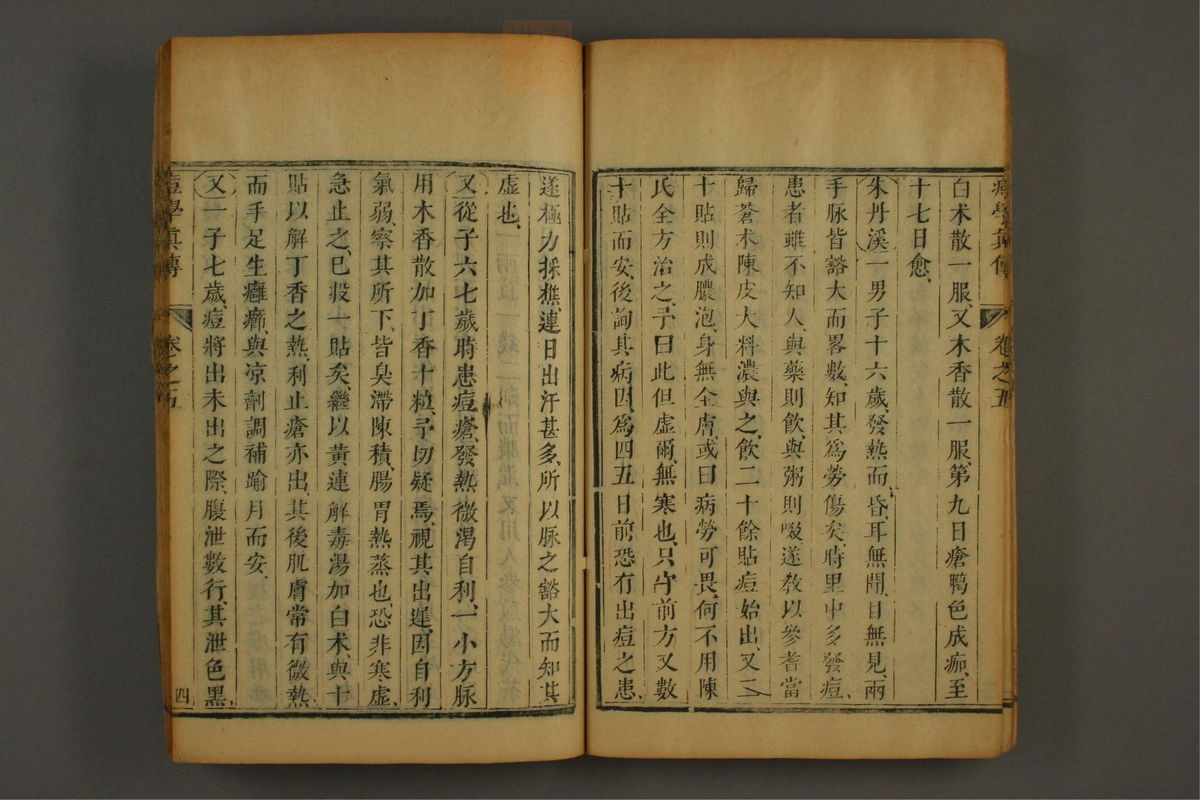 痘學眞傳 卷之五
白术散一服又木香散一服第九日瘡鴨色成痂至
十七日愈
朱丹溪一男子十六歲發熱而昏耳無聞目無見兩
手脉皆豁大而畧數知其爲勞傷矣時里中多發痘
患者雖不知人與藥則飮與粥則啜遂敎以參耆當
歸蒼术陳皮大料濃與之飮二十餘貼痘始出又二
十貼則成膿泡身無全膚或曰病勞可畏何不用陳
氏全方治之予曰此但虛爾無寒也只守前方又數
十貼而安後詢其病因爲四五日前恐有出痘之患
遂極力採樵連日出汗甚多所以脉之豁大而知其
虛也
又從子六七歲時患痘瘡發熱微渴自利一小方脉
用木香散加丁香十粒予切疑焉視其出遲因自利
氣弱察其所下皆臭滯陳積腸胃熱蒸也恐非寒虛
急止之已投一貼矣繼以黃連解毒湯加白术與十
貼以解丁香之熱利止瘡亦出其後肌膚常有微熱
而手足生癰癤與凉劑調補踰月而安
又一子七歲痘將出未出之際腹泄數行其泄色黑
痘學眞傳 卷之五 四